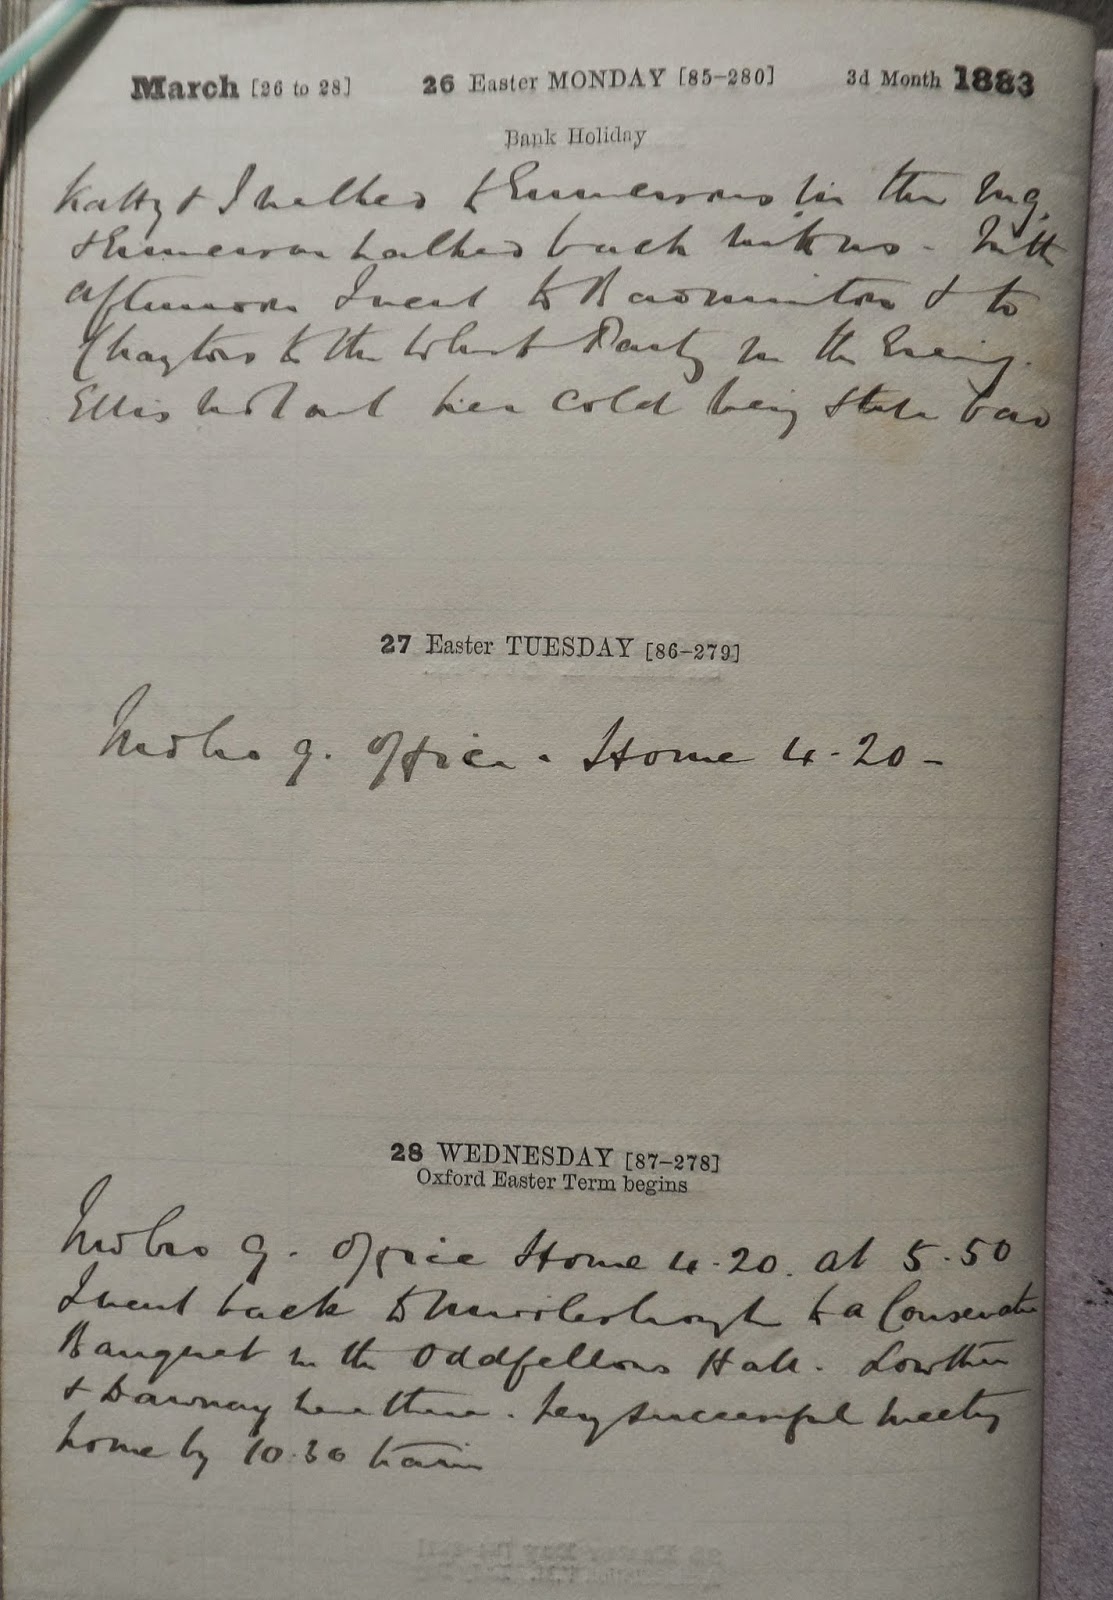 March [26 to 28] 26 Easter MONDAY [85–280] 3d Month 1883
Bank Holiday
Katty & I walked to Emmersons in the Mg.
& Emmerson walked back with us - In the
afternoon I went to Badminton & to
Chaytors to the Whist Party in the Evening.
Ellis not out her cold being still bad
27 Easter TUESDAY [86–279]
Midbro 9. Office. Home 4-20 -
28 WEDNESDAY [87–278]
Oxford Easter Term begins
Midbro 9. Office Home 4.20. at 5.50
I went back to Middlesbrough to a Conservative
Banquet in the Oddfellows Hall. Lowther
& Dawnay were there. Very successful meeting
home by 10.30 train